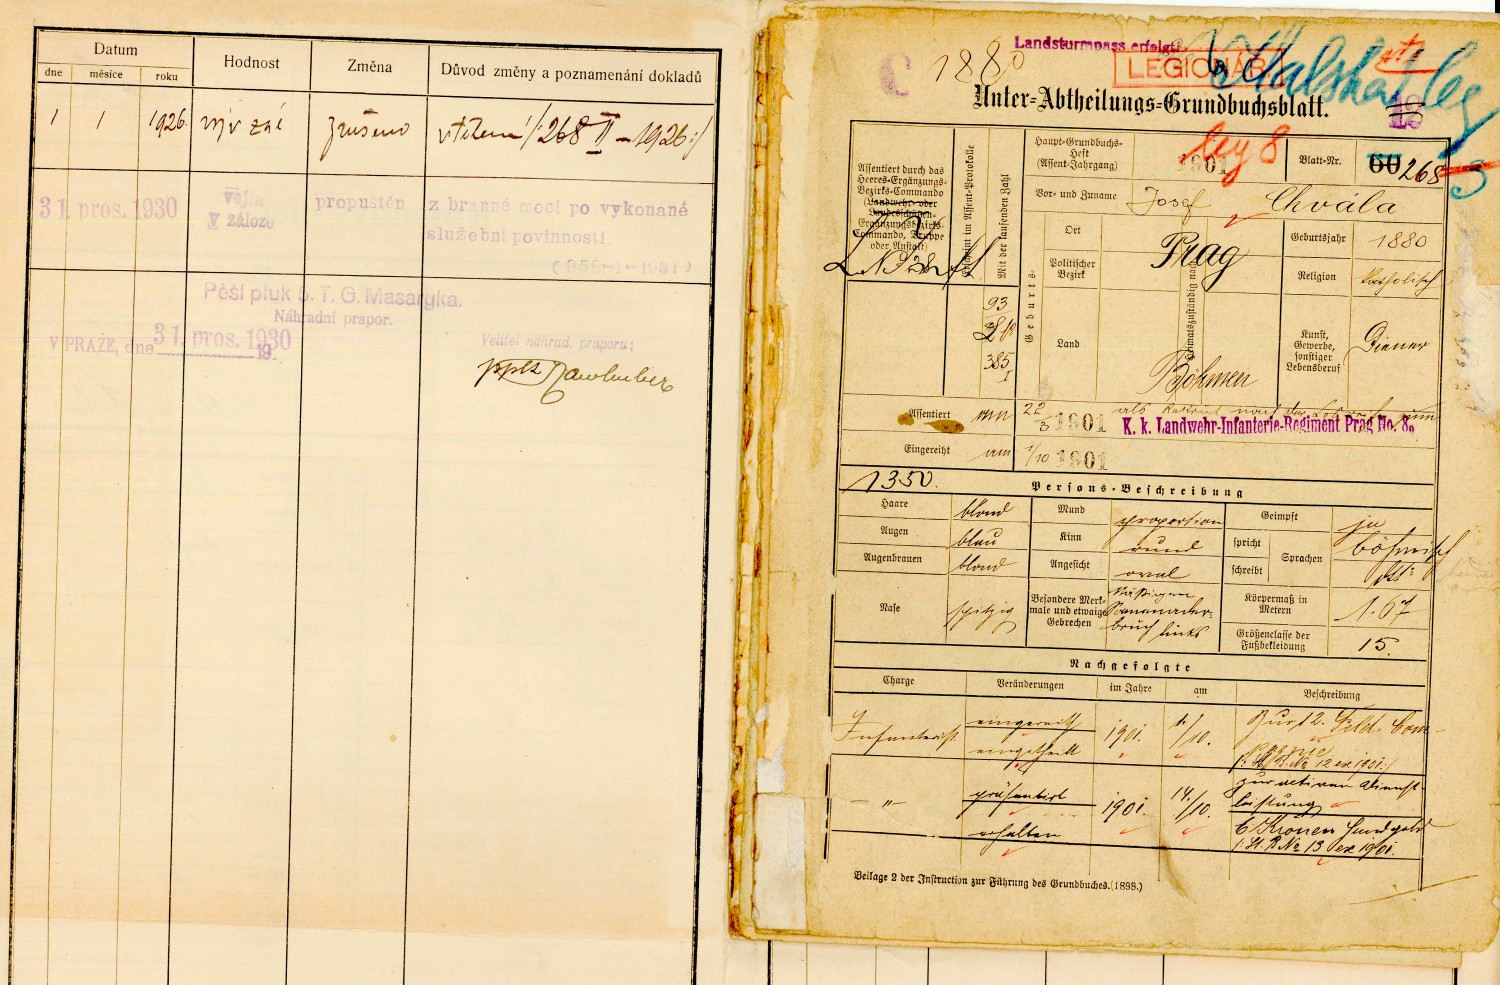 Datum
Hodnost
Změna
Důvod změny a poznamenání dokladů
dne
měsíce
roku
1 1 1926 zrušeno vtělení /:268 II – 1926:/
31. pros. 1930
vojín
v záloze
propuštěn
z branné moci po vykonané
služební povinnosti
(958-I-1931)
Pěší pluk 5. T. G. Masaryka.
Náhradní prapor.
V PRAZE, dne 31. pros. 1930
19
Velitel náhrad. praporu:
pplk
Landsturmpass erfolgt!
C
1880
LEGIONÁŘ
leg
Unter-Abtheilungs-Grundbuchsblatt.
Assentiert durch das
Heeres-Ergänzungs-
Bezirks-Commando
(Landwehr- oder
Landesschützen-
Ergänzungsbezirks-
Commando, Truppe
oder Anstalt)
Erscheint im Assent-Protokolle
Mit der laufenden Zahl
93
385
I
Haupt-Grundbuchs-
Heft
(Assent-Jahrgang)
1901
leg 8
Blatt-Nr.
60 268
3
Vor- und Zuname
Josef Chvála
Geburts-
Ort
Politischer
Bezirk
Land
Heimatszuständig nach
Prag
Böhmen
Geburtsjahr
1880
Religion
katholisch
Kunst,
Gewerbe,
sonstiger
Lebensberuf
Diener
Assentiert am 22/3 1901 als Rekrut
K. k. Landwehr-Infanterie-Regiment Prag No. 8.
Eingereiht am 1/10 1901
1350.
Persons-Beschreibung
Haare
blond
Augen
blau
Augenbrauen
blond
Nase
spitzig
Mund
proportion
Kinn
rund
Angesicht
oval
Besondere Merk-
male und etwaige
Gebrechen
bruch links
Geimpft
ja
spricht
schreibt
Sprachen
böhmisch
Körpermaß in
Metern
1.67
Größenclasse der
Fußbekleidung
15.
Nachgefolgte
Charge
Veränderungen
im Jahre
am
Beschreibung
Infanterist
eingereiht
eingetheilt
1901.
1./10.
Zur 12. Feld-Com-
pagnie
No 12 ex 1901:/
— " —
präsentirt
1901.
14./10.
zur activen Dienst-
leistung
erhalten
6 Kronen Handgeld
No 13 ex 1901.
Beilage 2 der Instruction zur Führung des Grundbuches. (1898.)